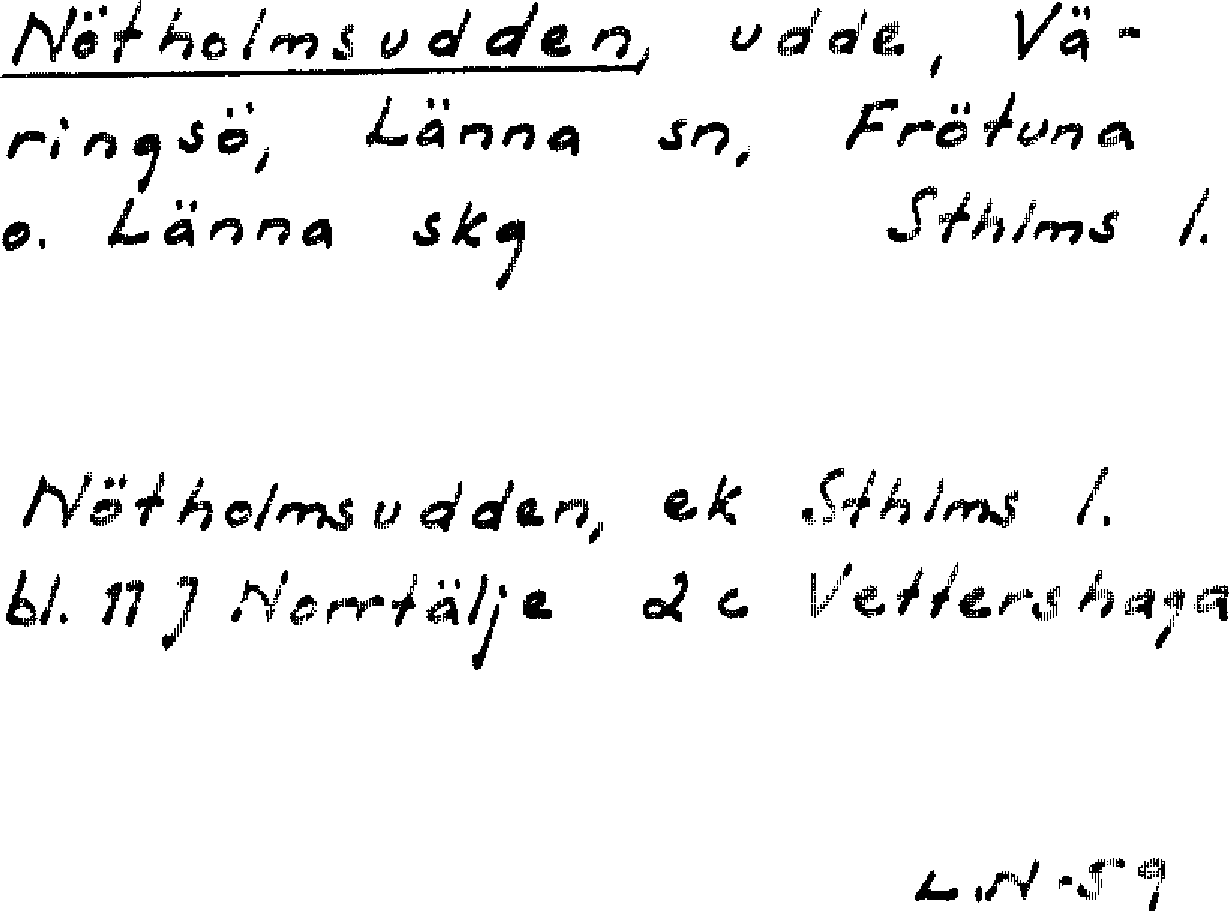 Nötholmsudden, udde, Vä-
ringsö, Länna sn, Frötuna
o. Länna skg Sthlms l.
Nötholmsudden, ek Sthlms l.
bl. 11 J Norrtälje 2 c Vettershaga
L.N -59